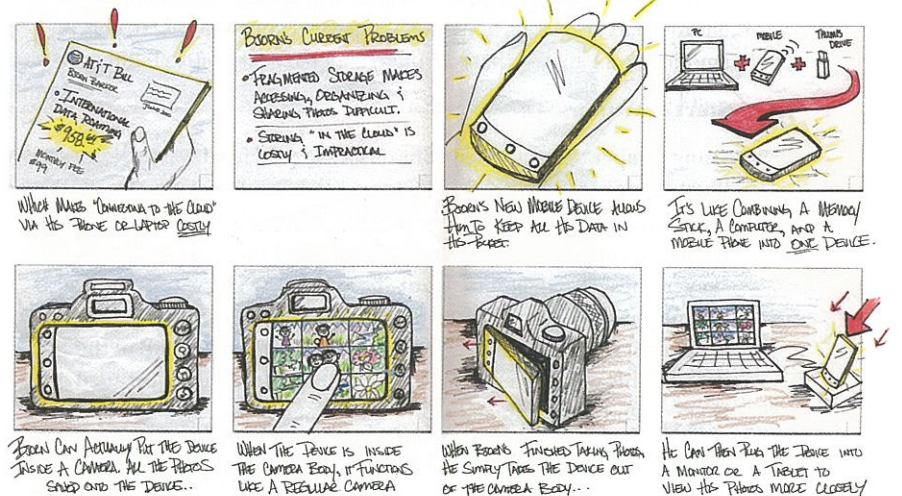 AT&T BILL
BJORN
JUNE 2010
• INTERNATIONAL
DATA ROAMING
$958.64
MONTHLY FEE
$99
WHICH MAKES "CONNECTING TO THE CLOUD"
VIA HIS PHONE OR LAPTOP COSTLY
BJORN'S CURRENT PROBLEMS
• FRAGMENTED STORAGE MAKES
ACCESSING, ORGANIZING &
SHARING PHOTOS DIFFICULT.
• STORING "IN THE CLOUD" IS
COSTLY & IMPRACTICAL
BJORN'S NEW MOBILE DEVICE ALLOWS
HIM TO KEEP ALL HIS DATA IN
HIS POCKET.
PC
MOBILE
THUMB
DRIVE
IT'S LIKE COMBINING A MEMORY
STICK, A COMPUTER, AND A
MOBILE PHONE INTO ONE DEVICE.
BJORN CAN ACTUALLY PUT THE DEVICE
INSIDE A CAMERA. ALL THE PHOTOS
SAVED ONTO THE DEVICE..
WHEN THE DEVICE IS INSIDE
THE CAMERA BODY, IT FUNCTIONS
LIKE A REGULAR CAMERA
WHEN BJORN'S FINISHED TAKING PHOTOS,
HE SIMPLY TAKES THE DEVICE OUT
OF THE CAMERA BODY...
HE CAN THEN PLUG THE DEVICE INTO
A MONITOR OR A TABLET TO
VIEW HIS PHOTOS MORE CLOSELY